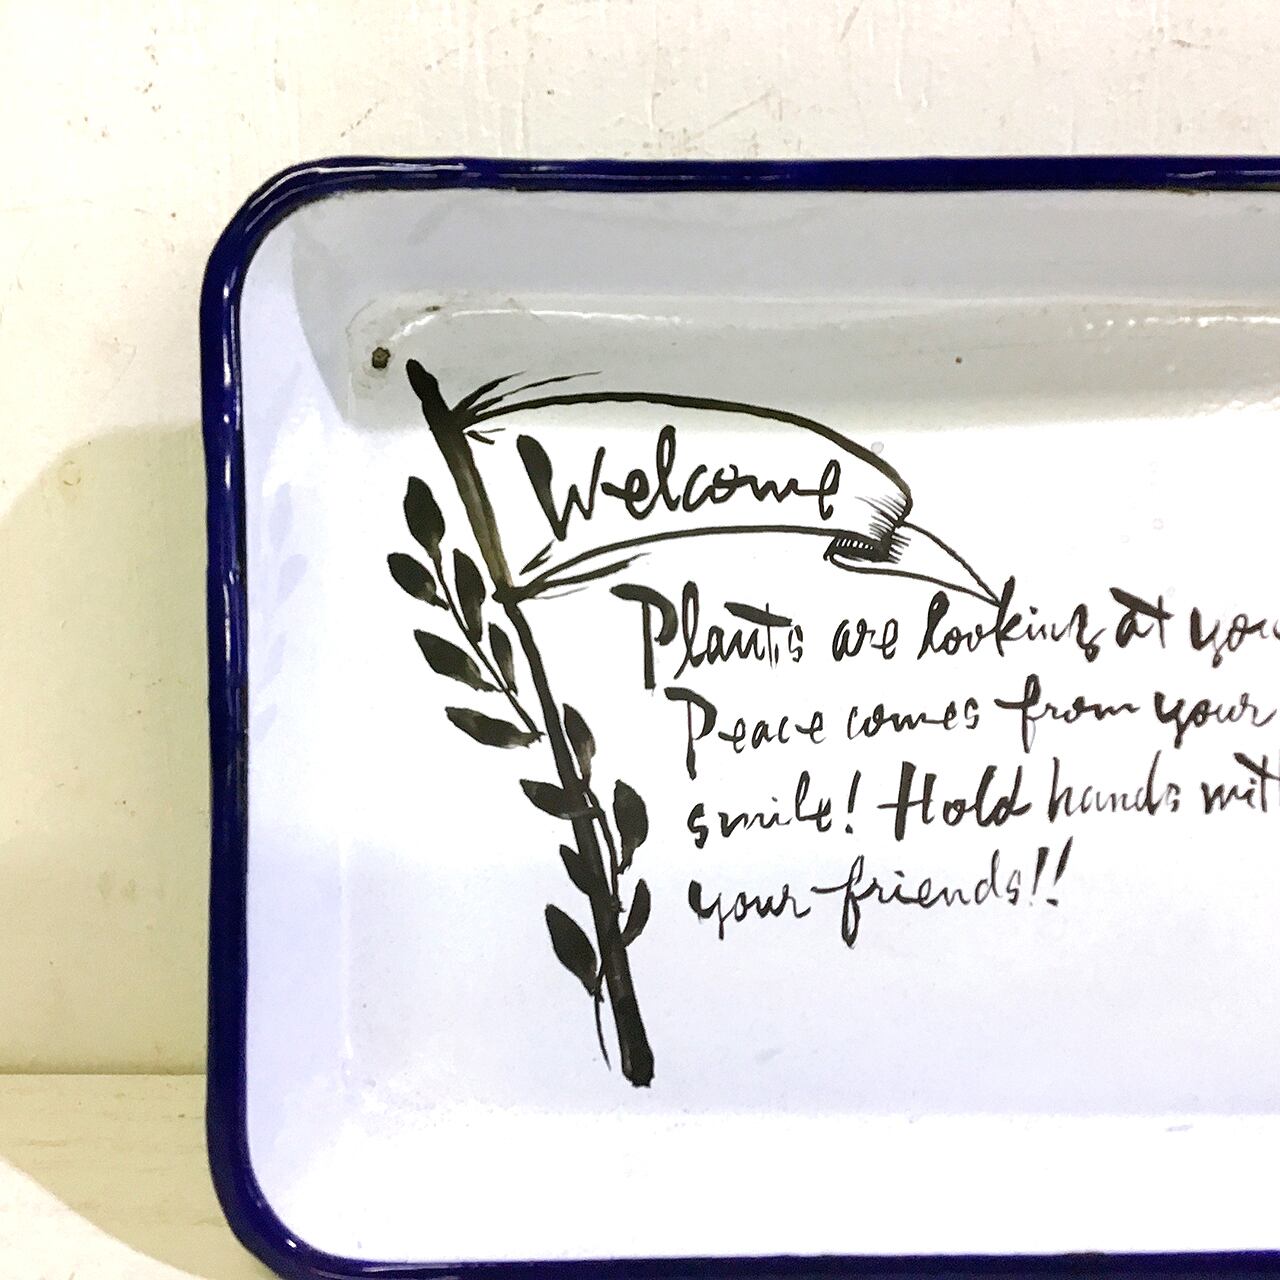 Welcome
Plants are looking at you
Peace comes from your
smile! Hold hands with
your friends!!